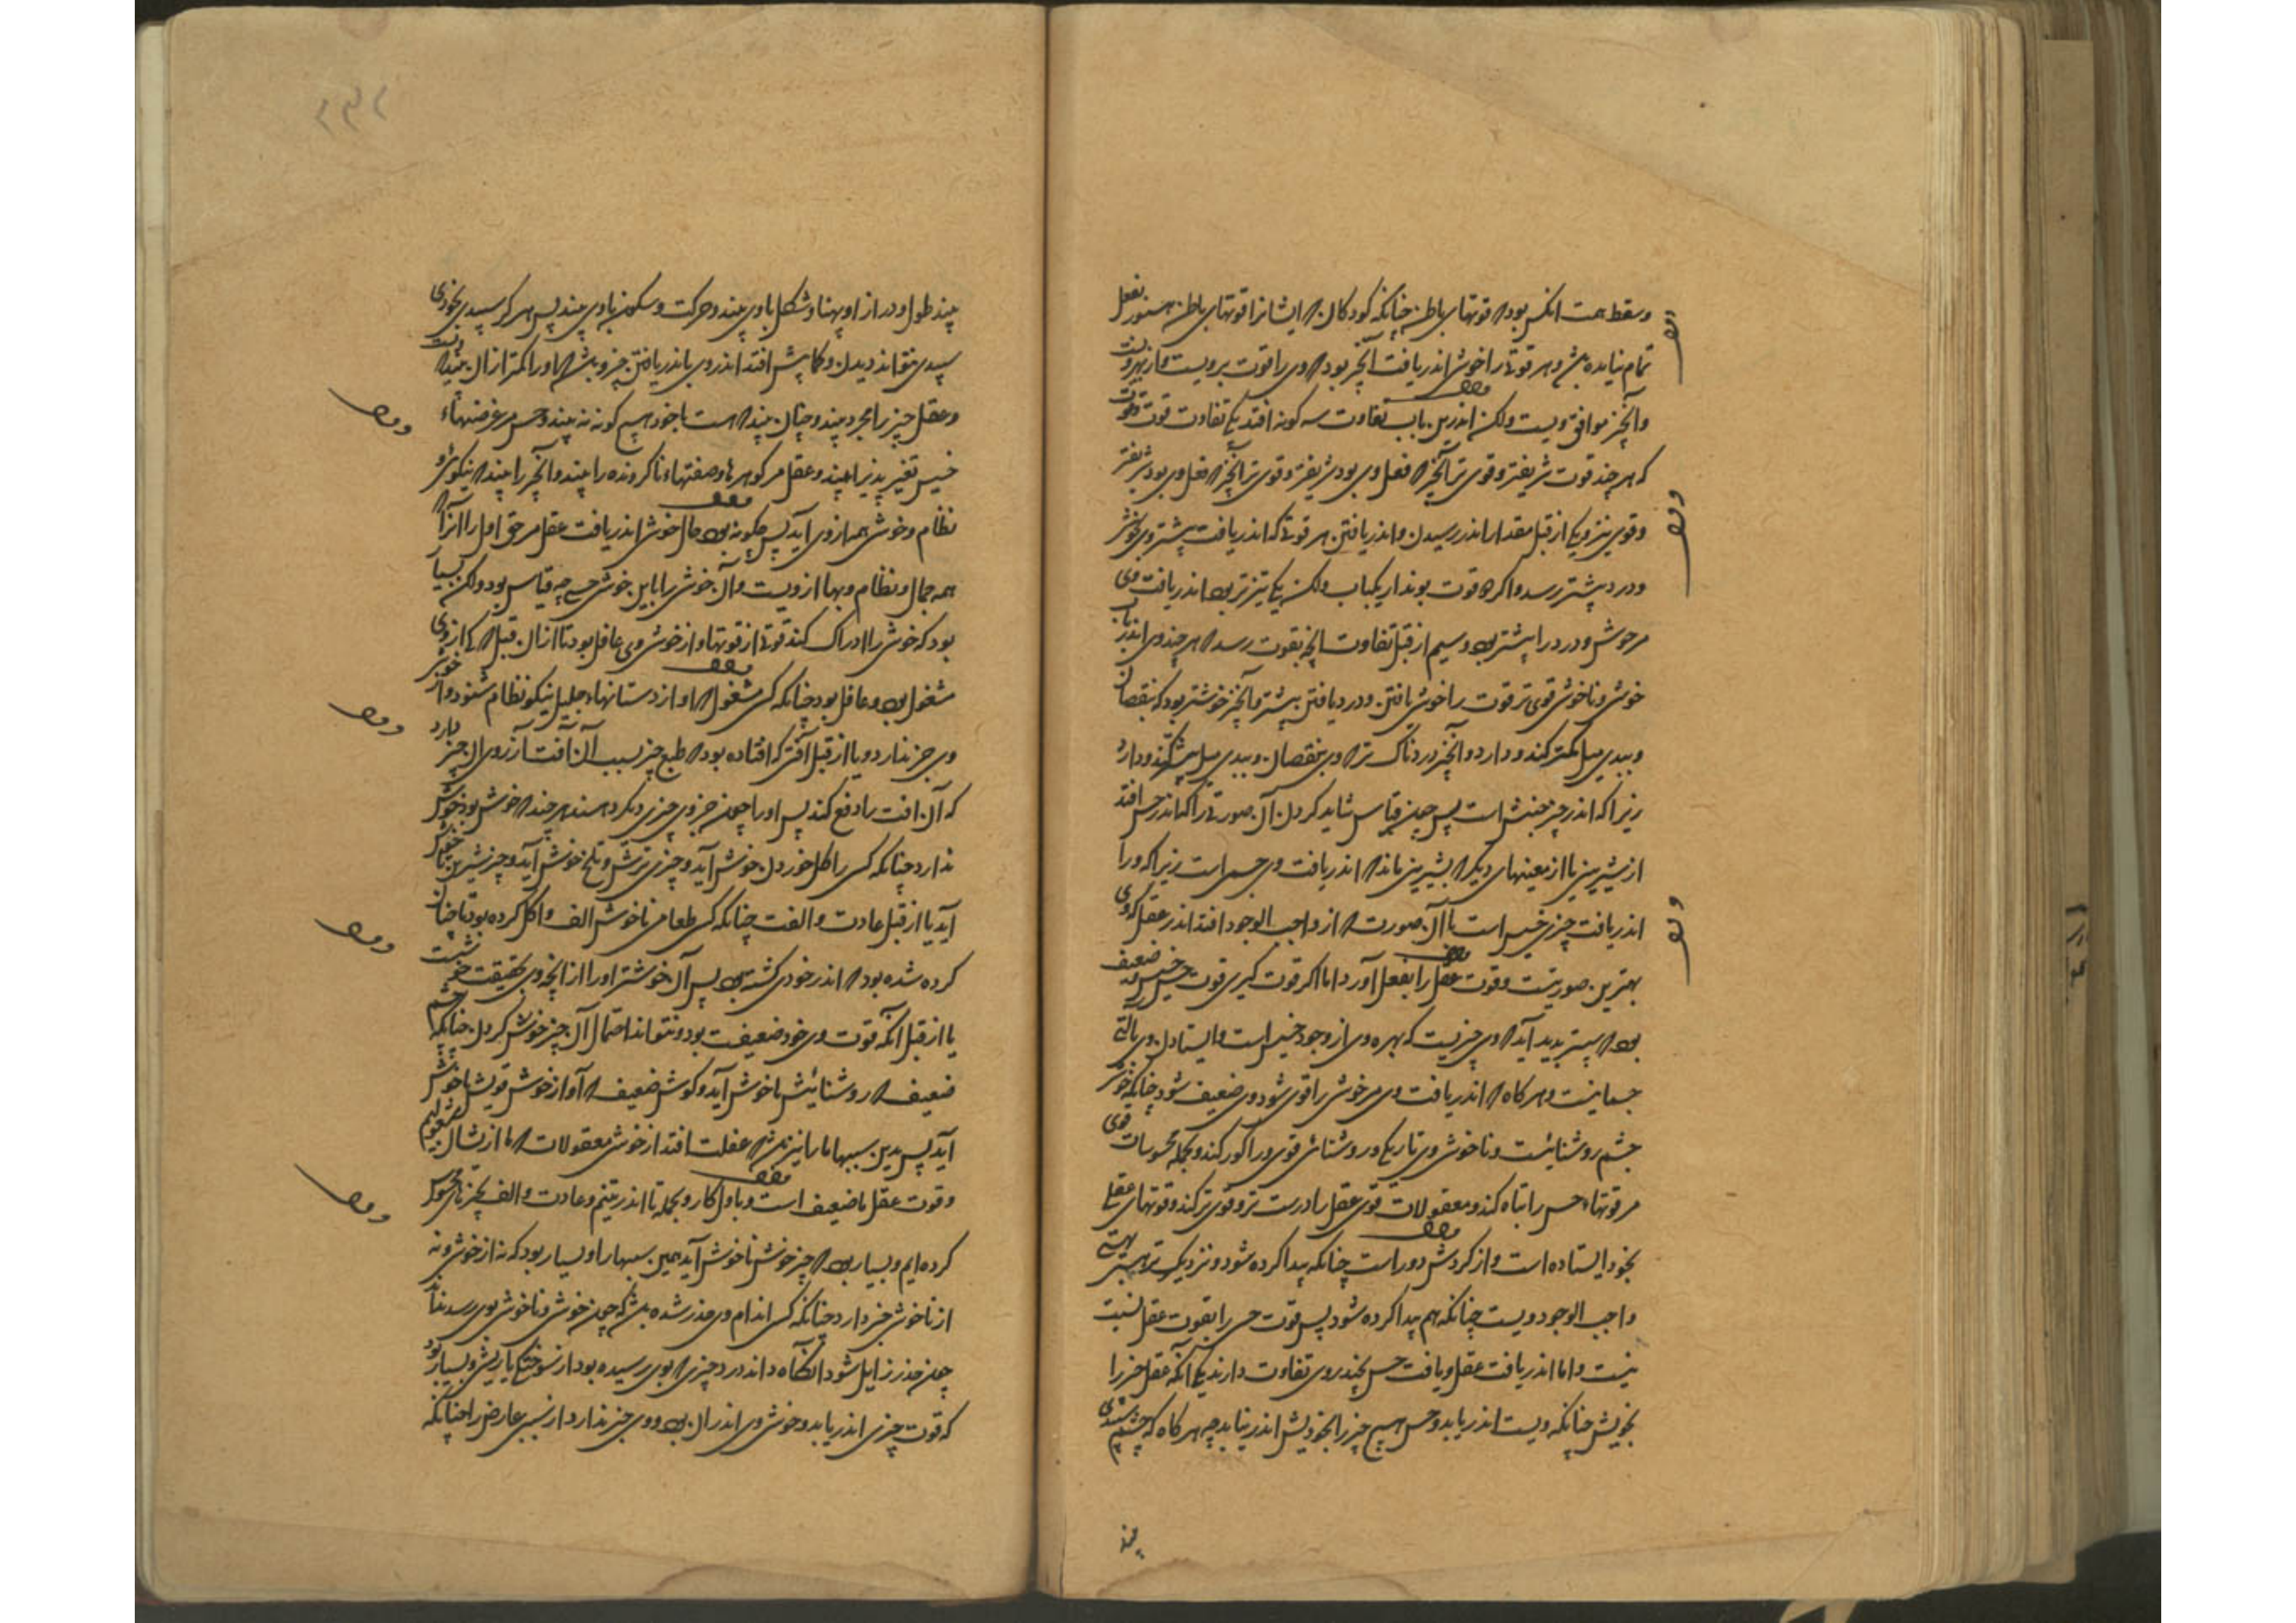 وسقط همت انکس بود که قوتهای باطن چنانکه کودکان که ایشانرا قوتهای باطن هنوز بفعل
تمام نیامده باشد و هر قوتی را خوشی اندر یافت آنچیز بود که وی را قوت بر ویست و از بهر ویست
و آنچیز موافق ویست ولکن اندرین باب تفاوت سه گونه افتد یکی تفاوت قوت و قوت
که هر چند قوت شریفتر و قوی تر آنچیز که فعل وی بود شریفتر و قوی تر آنچیز که فعل وی بود شریفتر
و قوی تر و یکی از قبل مقدار اندر رسیدن و اندر یافتن هر قوتی که اندر یافت بیشتر وی خوش
و درد بیشتر رسد و اگر دو قوت بوند از یکباب ولکن یکی تیزتر بود اندر یافت وی
مر خوشی و درد را بیشتر بود و سیم از قبل تفاوت آنچه بقوت رسد که هر چند وی اندر باب
خوشی و ناخوشی قوی تر قوت را خوشی یافتن و درد یافتن بیشتر و آنچیز خوشتر بود که بنقصان
و ببدی میل کمتر کند و دارد و آنچیز دردناک تر که وی بنقصان و ببدی میل بیشتر کند و دارد
زیرا که اندر چیز جنبش است پس چون قیاس شاید کردن آن صورتی را که اندر حس افتد
از شیرینی یا از معینهای دیگر که بشیرینی ماند که اندر یافت وی حس است زیرا که ورا
اندر یافت چیزی خسیس است با آن صورت که از واجب الوجود افتد اندر عقل که وی
بهترین صورتیست و قوت عقل را بفعل آورد اما اگر قوت گیری قوت حس خسیس و ضعیف
بود که سپستر پدید آید که وی چیزیست که بهره وی از وجود خسیس است و ایستادن وی بالتی
جسمانیست و هر گاه که اندر یافت وی مر خوشی را قوی شود وی ضعیف شود چنانکه خوشی
چشم روشنائیست و ناخوشی وی تاریکی و روشنائی قوی ورا کور کند و بجمله محسوسات قوی
مر قوتهاء حس را تباه کند و معقولات قوی عقل را درست تر و قوی تر کند و قوتهای عقلی
بخود ایستاده است و از گردش دور است چنانکه پیدا کرده شود و نزدیک ترین هستی بهستی
واجب الوجود ویست چنانکه هم پیدا کرده شود پس قوت حس را بقوت عقل نسبت
نیست و اما اندر یافت عقل و یافت حس بچند روی تفاوت دارند یکی آنکه عقل چیز را
بخویش چنانکه ویست اندر یابد و حس هیچ چیز را بخویش اندر نیابد چه هر گاه که چشم سپیدی
بیند
بیند طول و دراز او پهنا و شکل با وی بیند و حرکت و سکون با وی بیند پس هرگز سپیدی بخودی
سپیدی نتواند دیدن و کما بیش افتد اندر وی باندر یافتن چیز و باشد که او را کمتر از آن بیند که ویست
و عقل چیز را مجرد بیند و چنان بیند که هست یا خود هیچ گونه نه بیند و حس مر عرضهاء
خسیس تغیر پذیر را بیند و عقل مر گوهرها و صفتهاء نا گرونده را بیند و آنچیز را بیند که نیکوی و
نظام و خوشی همه از وی آید پس چگونه بود حال خوشی اندر یافت عقل مر حق اول را آنرا که
همه جمال و نظام و بها از ویست و آن خوشی را باین خوشی حسی چه قیاس بود ولکن بسیار
بود که خوشی را ادراک کند قوتی از قوتها و از خوشی وی غافل بود تا از آن قبل که از وی
مشغول بود و غافل بود چنانکه کسی مشغول که آواز دستانهاء جلیل نیکو نظام شنود و از خوشی
وی خبر ندارد و یا از قبل آفتی که افتاده بود که طبع چیز بسبب آن آفت آرزوی آن چیز دارد
که آن آفت را دفع کند پس او را چون جز وی چیزی دیگر دهند هر چند که خوش بود خوش
ندارد چنانکه کسی را گل خوردن خوش آید و چیزی ترش و تلخ خوش آید و چیز شیرین ناخوش
آید یا از قبل عادت و الفت چنانکه کسی طعامی ناخوش الف و اکل کرده بود تا چنان
کرده شده بود که اندر خوی گشته بود پس آن خوشتر او را از آنچه وی بحقیقت خوشست
یا از قبل آنکه قوت وی خود ضعیفت بود و نتواند احتمال آن چیز خوش کردن چنانکه چشم
ضعیف که روشنائیش ناخوش آید و گوش ضعیف که آواز خوش قویش ناخوش
آید پس بدین سببها ما را نیز باشد که غفلت افتد از خوشی معقولات که ما از یشان مشغولیم
و قوت عقل ما ضعیف است و باول کار و بجمله تا اندر تنیم و عادت و الف بچیزهای محسوس
کرده ایم و بسیار بود که چیز خوش ناخوش آید بهمین سببها را و بسیار بود که نه از خوشی و نه
از ناخوشی خبر دارد چنانکه کسی اندام وی خدر شده باشد که چون خوشی و ناخوشی بوی رسد نداند
چون خدر زایل شود آنگاه داند درد چیزی که بوی رسیده بود از سوختگی یا ریشی و بسیار بود
که قوت چیزی اندر یابد و خوشی وی اندر آن بود و وی خبر ندارد از سببی عارض را چنانکه